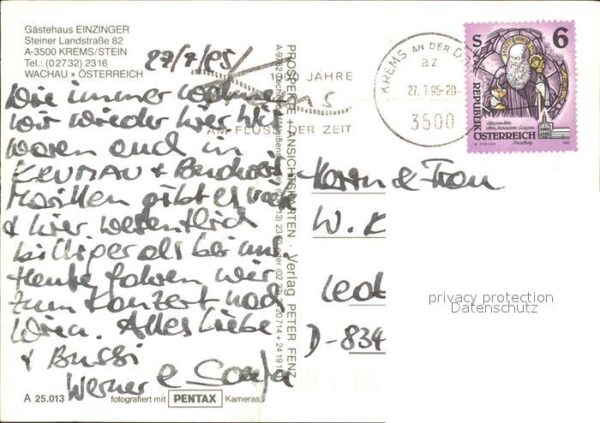 Gästehaus EINZINGER
Steiner Landstraße 82
A-3500 KREMS/STEIN
Tel.: (02732) 2316
WACHAU • ÖSTERREICH
27/7/95
Wie immer wohnen
wir wieder hier. Wir
waren auch in
KRUMAU +
Marillen gibt es
+ hier wesentlich
billiger als bei uns.
Heute fahren wir
zum Konzert nach
Wien. Alles Liebe
+ Bussi
Werner & Sonja
A 25.013
fotografiert mit PENTAX Kameras
PROSPEKTE + ANSICHTSKARTEN · Verlag PETER FENZ
1000 JAHRE
AM FLUSS DER ZEIT
KREMS AN DER D
az
27.7.95-20
3500
S 6
REPUBLIK
ÖSTERREICH
Herrn & Frau
W. K
D-834
privacy protection
Datenschutz